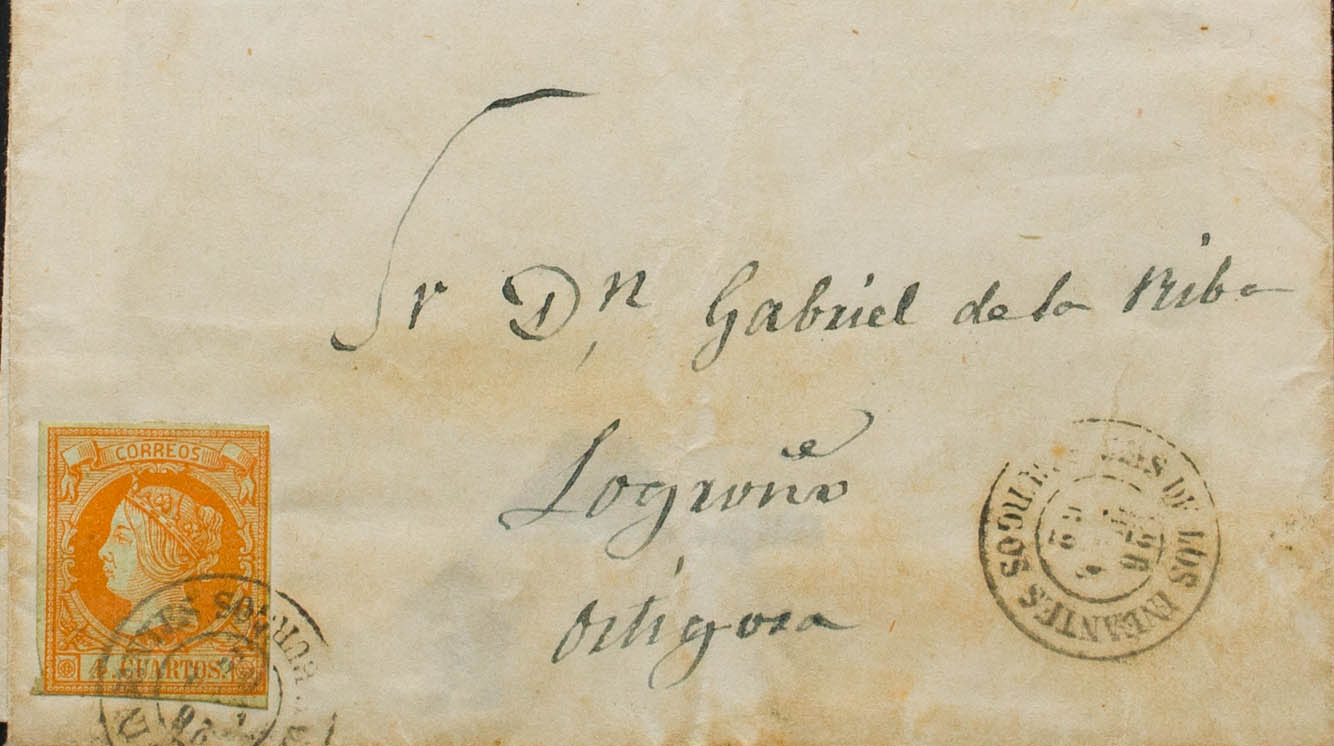 Sr Dn Gabriel de la Riba
Logroño
Ortigosa
CORREOS
4 CUARTOS.
DE LOS INFANTES
BURGOS